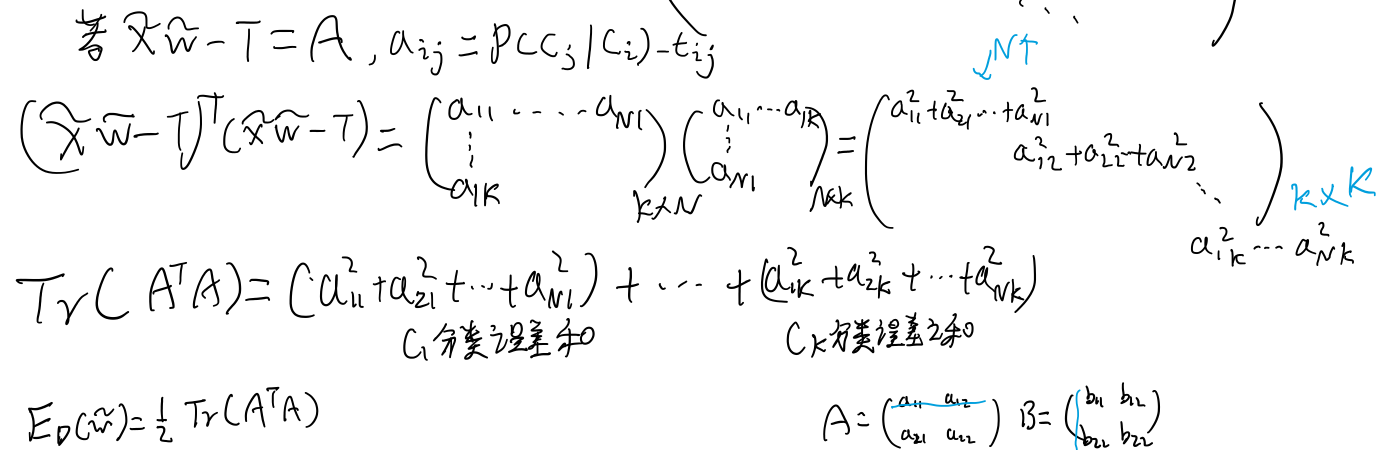 若 X̃W̃-T=A, a_ij=P(C_j|C_i)-t_ij
N个
(X̃W̃-T)^T(X̃W̃-T)=(a_11 ····· a_N1 ⋮ a_1K)_K×N (a_11 ··· a_1K ⋮ a_N1)_N×K=(a_11^2+a_21^2···+a_N1^2 a_12^2+a_22^2···+a_N2^2 ⋱ a_1K^2 ··· a_NK^2)_K×K
Tr(A^TA)=(a_11^2+a_21^2+···+a_N1^2)+···+(a_1K^2+a_2K^2+···+a_NK^2)
C_1分类误差和 C_K分类误差之和
E_D(w̃)=1/2 Tr(A^TA) A=(a_11 a_12 a_21 a_22) B=(b_11 b_12 b_22 b_22)